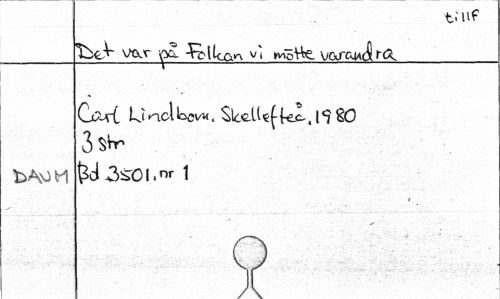 tillf
Det var på Folkan vi mötte varandra
Carl Lindbom. Skellefteå. 1980
3 str
DAUM Bd 3501. nr 1